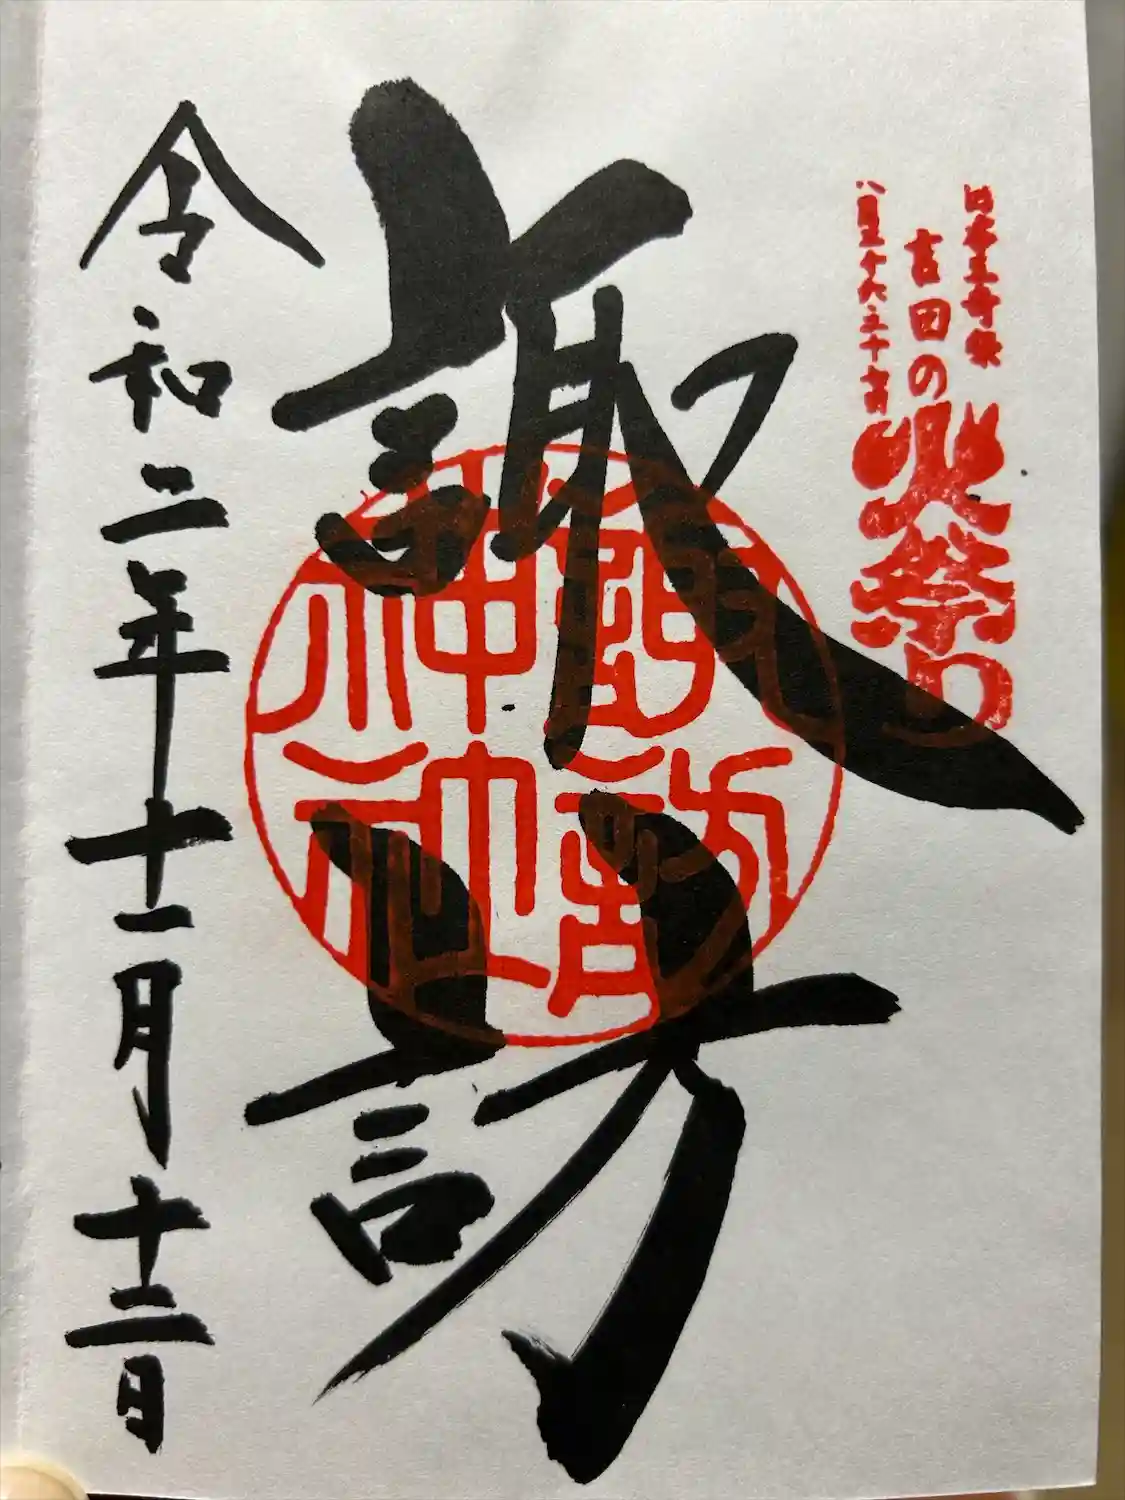 日本三奇祭
吉田の火祭り
八月二十六二十七日
諏訪
諏訪神社
令和二年十一月十二日